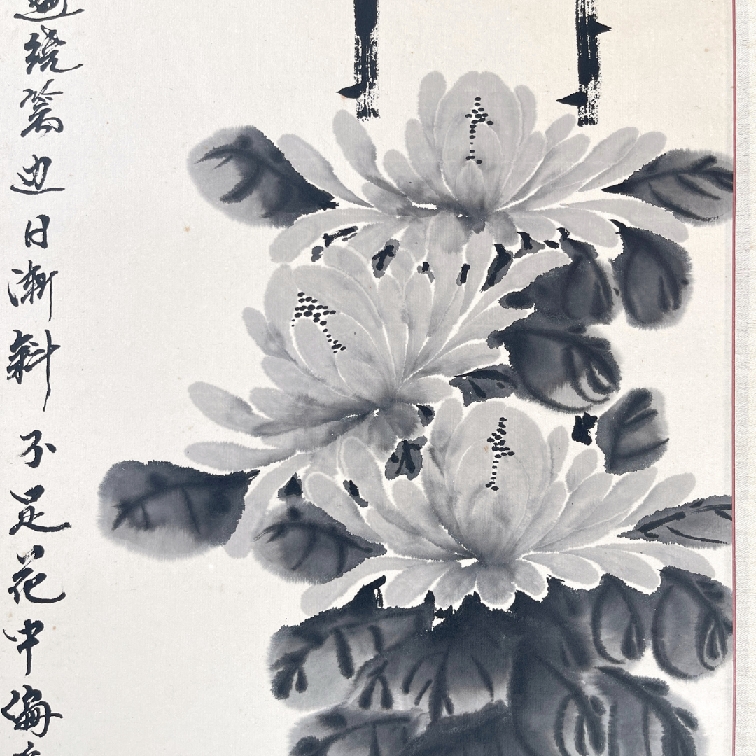 遍绕篱边日漸斜不是花中偏